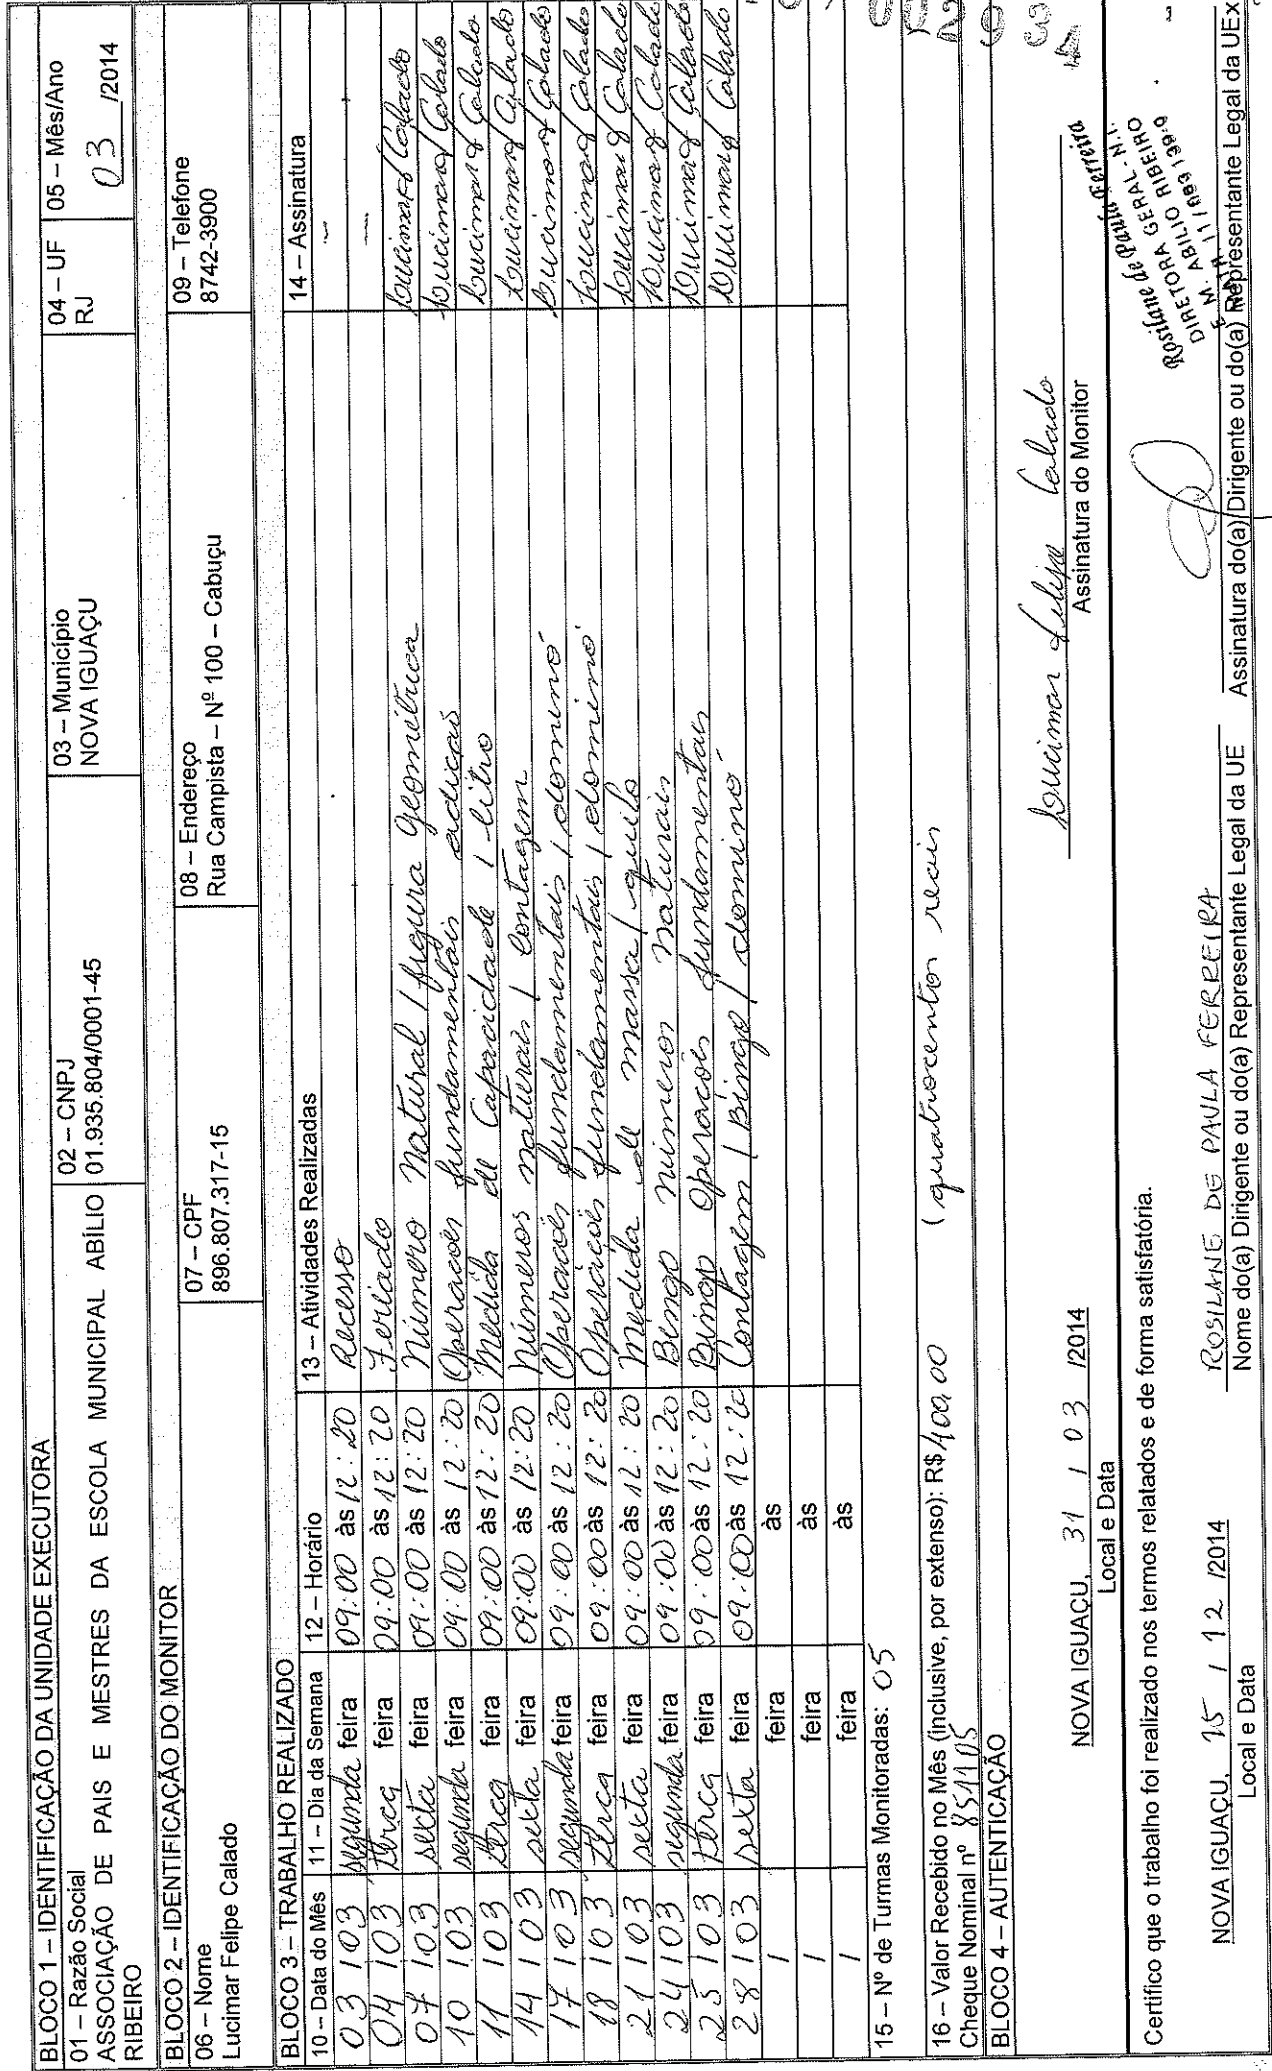 BLOCO 1 – IDENTIFICAÇÃO DA UNIDADE EXECUTORA
01 – Razão Social
ASSOCIAÇÃO DE PAIS E MESTRES DA ESCOLA MUNICIPAL ABÍLIO
RIBEIRO
02 – CNPJ
01.935.804/0001-45
03 – Município
NOVA IGUAÇU
04 – UF
RJ
05 – Mês/Ano
03 /2014
BLOCO 2 – IDENTIFICAÇÃO DO MONITOR
06 – Nome
Lucimar Felipe Calado
07 – CPF
896.807.317-15
08 – Endereço
Rua Campista – Nº 100 – Cabuçu
09 – Telefone
8742-3900
BLOCO 3 – TRABALHO REALIZADO
10 – Data do Mês 11 – Dia da Semana 12 – Horário 13 – Atividades Realizadas 14 – Assinatura
03 / 03 segunda feira 09:00 às 12:20 Recesso
04 / 03 terça feira 09:00 às 12:20 Feriado
07 / 03 sexta feira 09:00 às 12:20 Número Natural / figura geométrica Lucimar f Calado
10 / 03 segunda feira 09:00 às 12:20 Operacões fundamentais adicao Lucimar f Calado
11 / 03 terça feira 09:00 às 12:20 Medida de Capacidade / litro Lucimar f Calado
14 / 03 sexta feira 09:00 às 12:20 Números naturais / contagem Lucimar f Calado
17 / 03 segunda feira 09:00 às 12:20 Operacões fundamentais / dominó Lucimar f Calado
18 / 03 terça feira 09:00 às 12:20 Operações fundamentais / dominó Lucimar f Calado
21 / 03 sexta feira 09:00 às 12:20 Medida de massa / quilo Lucimar f Calado
24 / 03 segunda feira 09:00 às 12:20 Bingo números naturais Lucimar f Calado
25 / 03 terça feira 09:00 às 12:20 Bingo Operacões fundamentais Lucimar f Calado
28 / 03 sexta feira 09:00 às 12:20 Contagem / Bingo / dominó Lucimar f Calado
/ feira às
/ feira às
/ feira às
15 – Nº de Turmas Monitoradas: 05
16 – Valor Recebido no Mês (inclusive, por extenso): R$ 400,00 (quatrocentos reais
Cheque Nominal nº 851105
BLOCO 4 – AUTENTICAÇÃO
NOVA IGUAÇU, 31 / 03 /2014
Local e Data
Lucimar Felipe Calado
Assinatura do Monitor
Certifico que o trabalho foi realizado nos termos relatados e de forma satisfatória.
Rosilane de Paula Ferreira
DIRETORA GERAL - N.I.
E. M. ABILIO RIBEIRO
NOVA IGUAÇU, 15 / 12 /2014
Local e Data
ROSILANE DE PAULA FERREIRA
Nome do(a) Dirigente ou do(a) Representante Legal da UE
Assinatura do(a) Dirigente ou do(a) Representante Legal da UEx